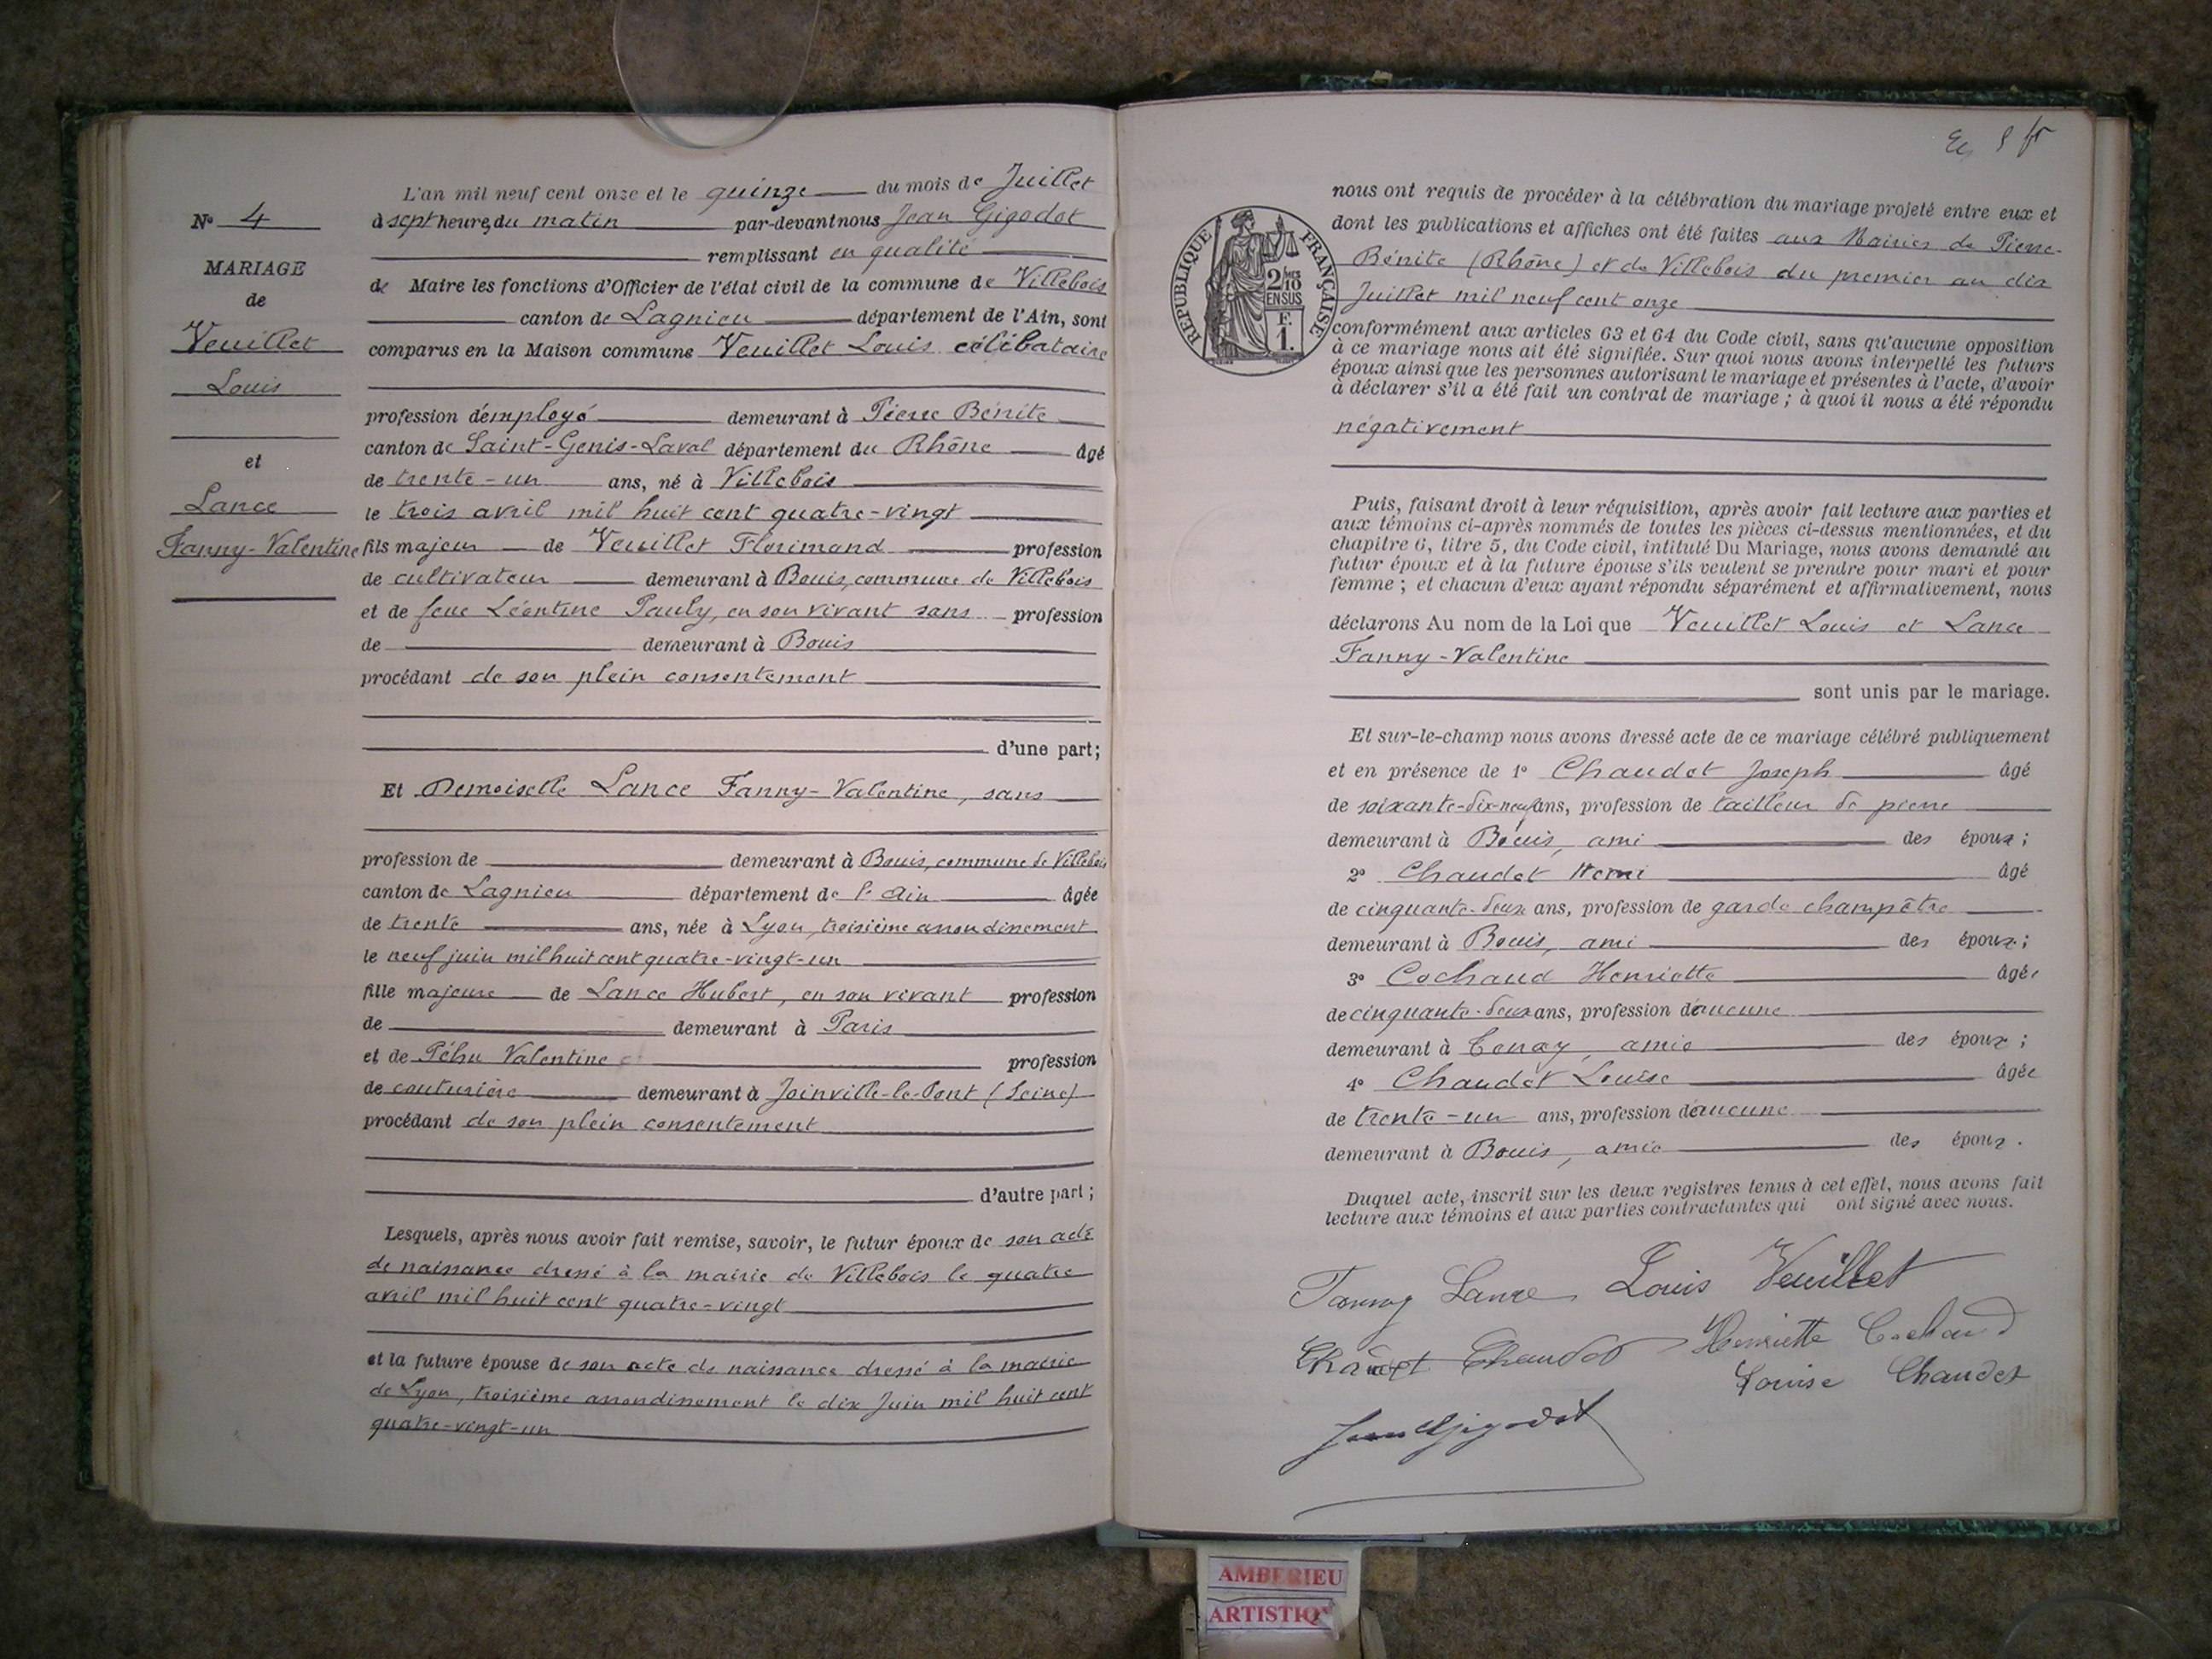 L'an mil neuf cent onze et le quinze du mois de Juillet
à sept heures du matin par-devant nous Jean Gigodot
remplissant en qualité
de Maire les fonctions d'Officier de l'état civil de la commune de Villebois
canton de Lagnieu département de l'Ain, sont
comparus en la Maison commune Veuillet Louis célibataire
profession d'employé demeurant à Pierre Bénite
canton de Saint-Genis-Laval département du Rhône âgé
de trente-un ans, né à Villebois
le trois avril mil huit cent quatre-vingt
fils majeur de Veuillet Florimond profession
de cultivateur demeurant à Bouis, commune de Villebois
et de feue Léontine Pauly, en son vivant sans profession
de demeurant à Bouis
procédant de son plein consentement
d'une part;
Et Demoiselle Lance Fanny-Valentine, sans
profession de demeurant à Bouis, commune de Villebois
canton de Lagnieu département de l'Ain âgée
de trente ans, née à Lyon, troisième arrondissement
le neuf juin mil huit cent quatre-vingt-un
fille majeure de Lance Hubert, en son vivant profession
de demeurant à Paris
et de Péhu Valentine profession
de couturière demeurant à Joinville-le-Pont (Seine)
procédant de son plein consentement
d'autre part;
Lesquels, après nous avoir fait remise, savoir, le futur époux de son acte
de naissance dressé à la mairie de Villebois le quatre
avril mil huit cent quatre-vingt
et la future épouse de son acte de naissance dressé à la mairie
de Lyon, troisième arrondissement le dix Juin mil huit cent
quatre-vingt-un
N° 4
MARIAGE
de
Veuillet
Louis
et
Lance
Fanny-Valentine
5 fr
RÉPUBLIQUE FRANÇAISE
2/10
EN SUS
F.
1.
nous ont requis de procéder à la célébration du mariage projeté entre eux et
dont les publications et affiches ont été faites aux Mairies de Pierre-
Bénite (Rhône) et de Villebois du premier au dix
Juillet mil neuf cent onze
conformément aux articles 63 et 64 du Code civil, sans qu'aucune opposition
à ce mariage nous ait été signifiée. Sur quoi nous avons interpellé les futurs
époux ainsi que les personnes autorisant le mariage et présentes à l'acte, d'avoir
à déclarer s'il a été fait un contrat de mariage ; à quoi il nous a été répondu
négativement
Puis, faisant droit à leur réquisition, après avoir fait lecture aux parties et
aux témoins ci-après nommés de toutes les pièces ci-dessus mentionnées, et du
chapitre 6, titre 5, du Code civil, intitulé Du Mariage, nous avons demandé au
futur époux et à la future épouse s'ils veulent se prendre pour mari et pour
femme ; et chacun d'eux ayant répondu séparément et affirmativement, nous
déclarons Au nom de la Loi que Veuillet Louis et Lance
Fanny-Valentine
sont unis par le mariage.
Et sur-le-champ nous avons dressé acte de ce mariage célébré publiquement
et en présence de 1° Chaudet Joseph âgé
de soixante-dix-neuf ans, profession de tailleur de pierre
demeurant à Bouis, ami des époux ;
2° Chaudet Rémi âgé
de cinquante-deux ans, profession de garde champêtre
demeurant à Bouis, ami des époux ;
3° Cochaud Henriette âgée
de cinquante-deux ans, profession d'aucune
demeurant à Tenay, amie des époux ;
4° Chaudet Louise âgée
de trente-un ans, profession d'aucune
demeurant à Bouis, amie des époux.
Duquel acte, inscrit sur les deux registres tenus à cet effet, nous avons fait
lecture aux témoins et aux parties contractantes qui ont signé avec nous.
Fanny Lance Louis Veuillet
Chaudet Chaudet Henriette Cochaud
Louise Chaudet
Jean Gigodot
AMBERIEU
ARTISTIQ